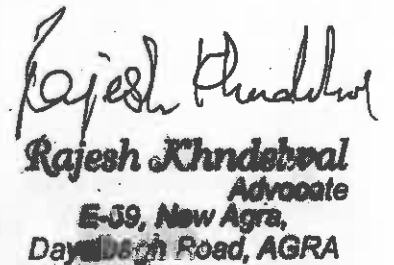 Rajesh Khndelwal
Rajesh Khndelwal
Advocate
E-39, New Agra,
Dayalbagh Road, AGRA